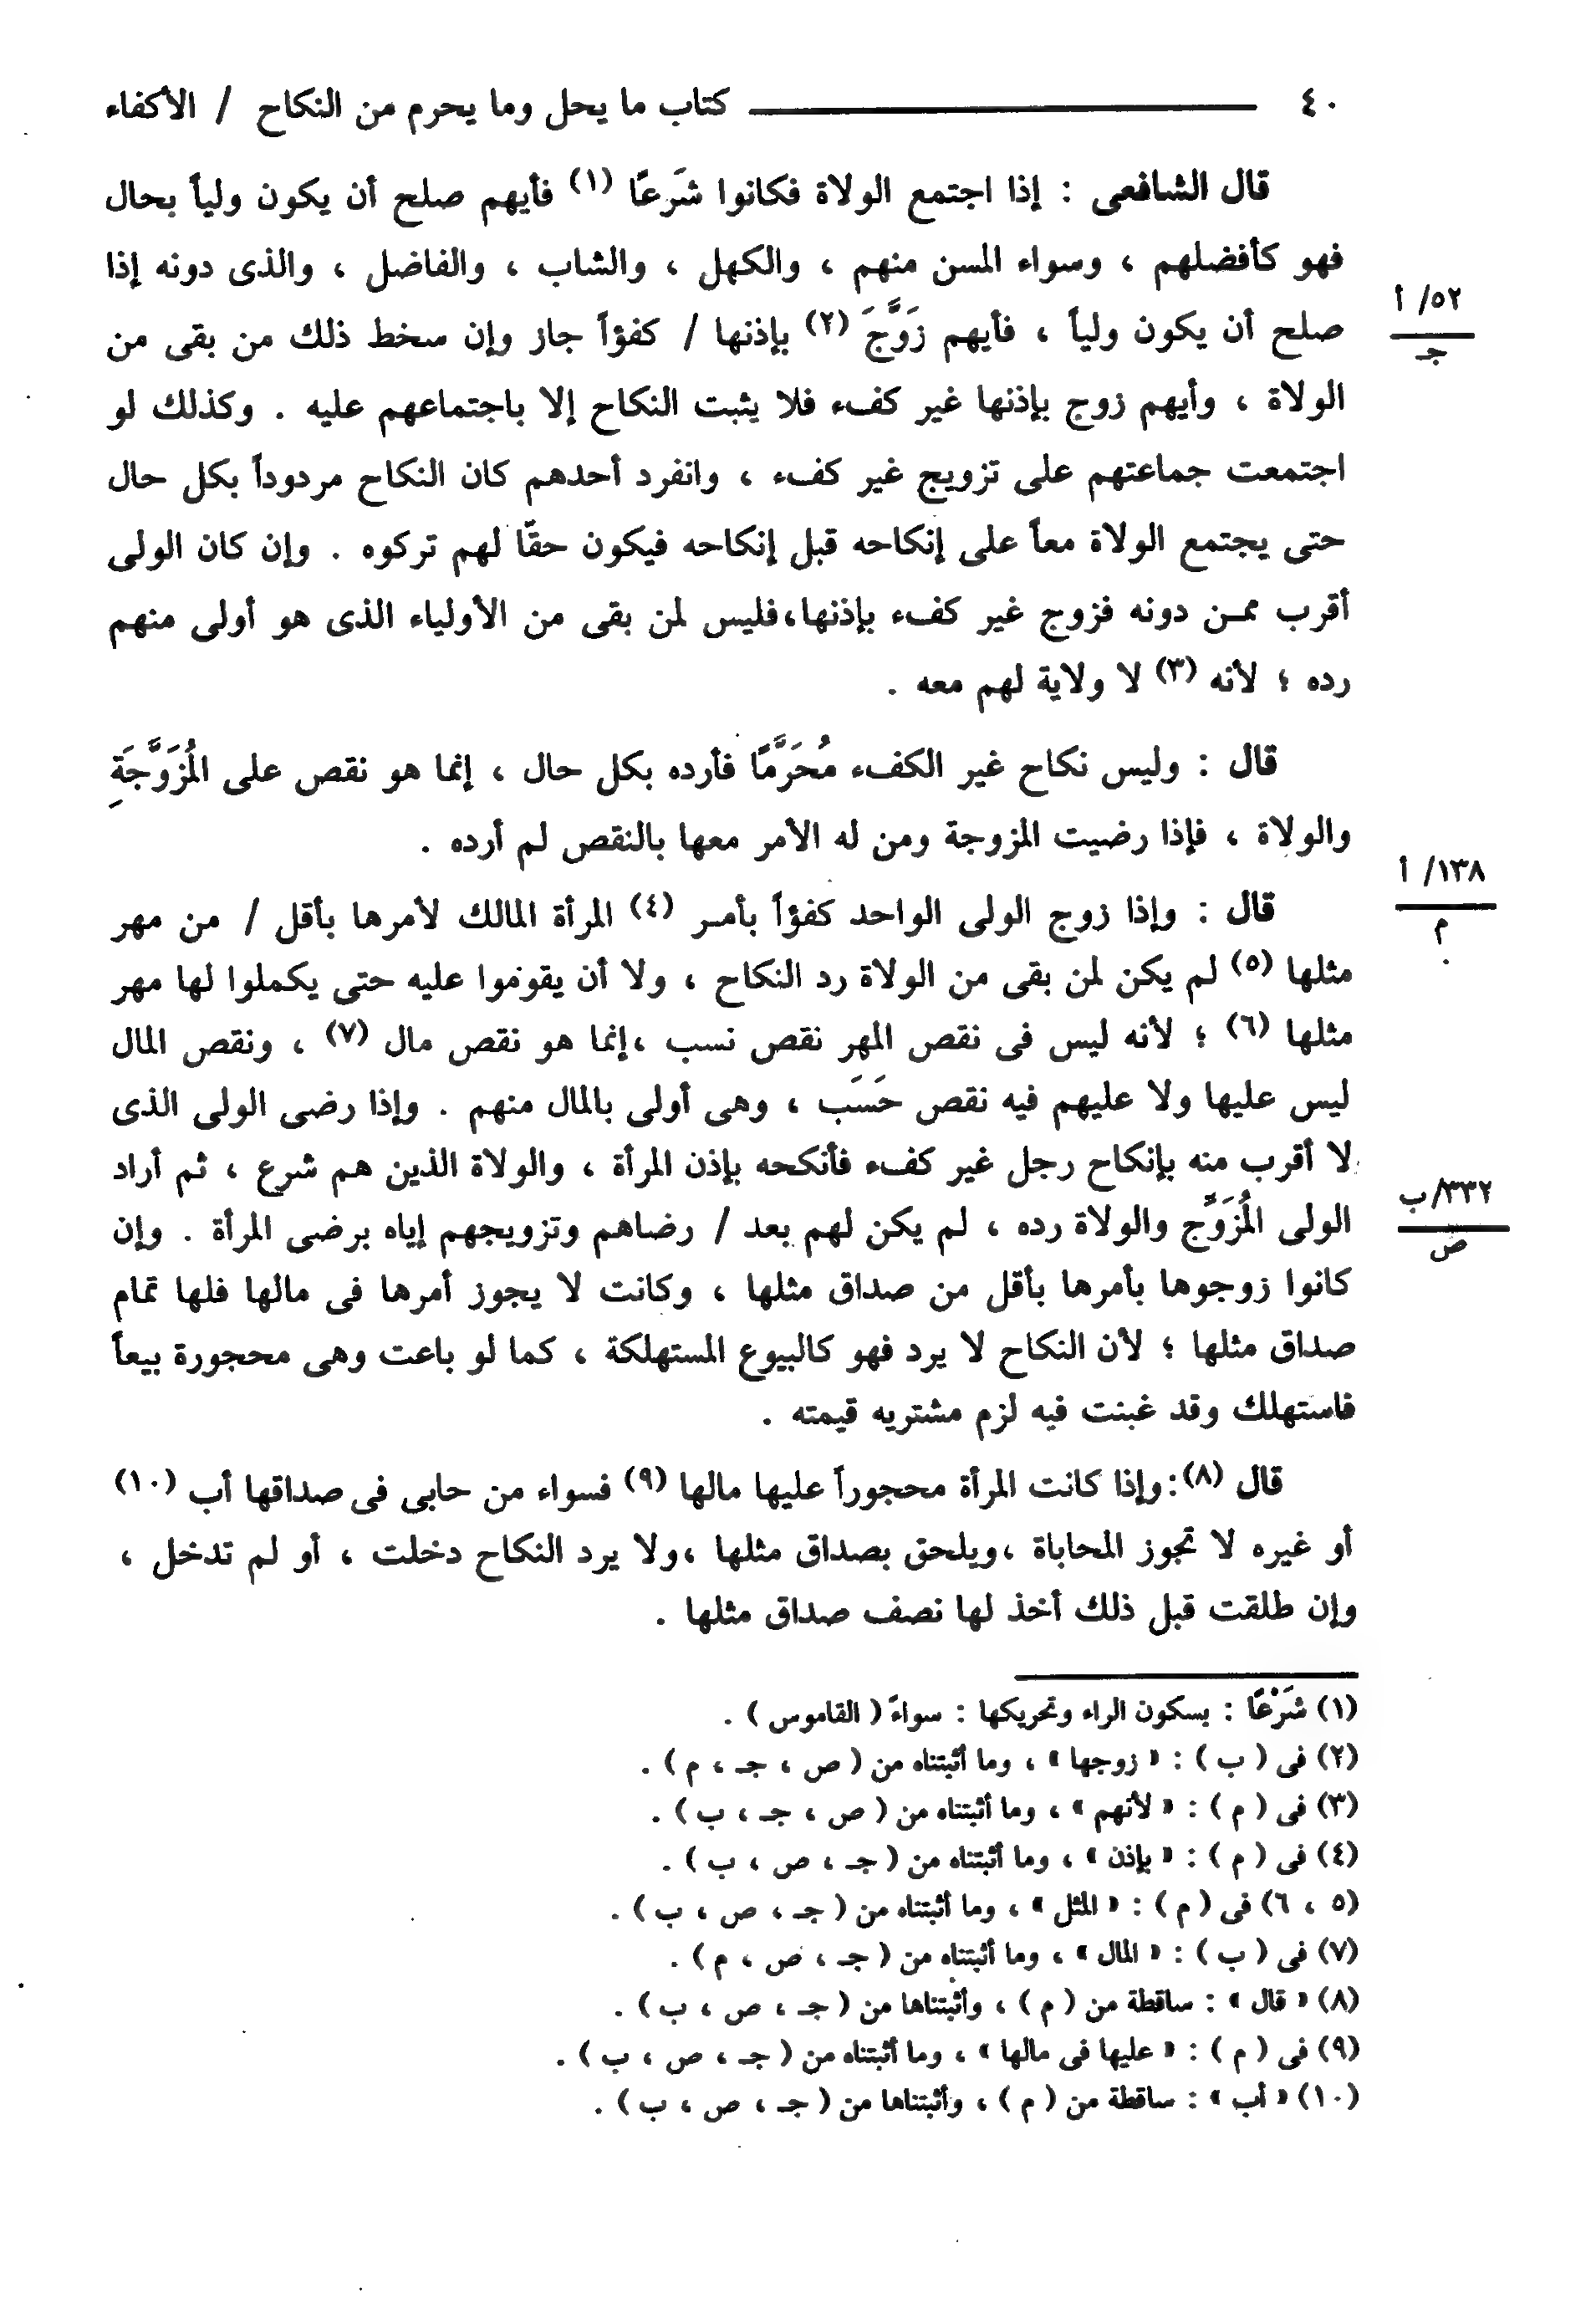 ٤٠ كتاب ما يحل وما يحرم من النكاح / الأكفاء
قال الشافعى : إذا اجتمع الولاة فكانوا شَرَعًا (١) فأيهم صلح أن يكون ولياً بحال
فهو كأفضلهم ، وسواء المسن منهم ، والكهل ، والشاب ، والفاضل ، والذى دونه إذا
صلح أن يكون ولياً ، فأيهم زَوَّجَ (٢) بإذنها / كفؤاً جاز وإن سخط ذلك من بقى من
٥٢/ أ
جـ
الولاة ، وأيهم زوج بإذنها غير كفء فلا يثبت النكاح إلا باجتماعهم عليه . وكذلك لو
اجتمعت جماعتهم على تزويج غير كفء ، وانفرد أحدهم كان النكاح مردوداً بكل حال
حتى يجتمع الولاة معاً على إنكاحه قبل إنكاحه فيكون حقّا لهم تركوه . وإن كان الولى
أقرب ممـن دونه فزوج غير كفء بإذنها،فليس لمن بقى من الأولياء الذى هو أولى منهم
رده ؛ لأنه (٣) لا ولاية لهم معه .
قال : وليس نكاح غير الكفء مُحَرَّمًا فأرده بكل حال ، إنما هو نقص على المُزَوَّجَةِ
والولاة ، فإذا رضيت المزوجة ومن له الأمر معها بالنقص لم أرده .
قال : وإذا زوج الولى الواحد كفؤاً بأمـر (٤) المرأة المالك لأمرها بأقل / من مهر
١٣٨/ أ
م
مثلها (٥) لم يكن لمن بقى من الولاة رد النكاح ، ولا أن يقوموا عليه حتى يكملوا لها مهر
مثلها (٦) ؛ لأنه ليس فى نقص المهر نقص نسب ،إنما هو نقص مال (٧) ، ونقص المال
ليس عليها ولا عليهم فيه نقص حَسَب ، وهى أولى بالمال منهم . وإذا رضى الولى الذى
لا أقرب منه بإنكاح رجل غير كفء فأنكحه بإذن المرأة ، والولاة الذين هم شرع ، ثم أراد
الولى المُزَوِّج والولاة رده ، لم يكن لهم بعد / رضاهم وتزويجهم إياه برضى المرأة . وإن
٣٣٢/ب
ص
كانوا زوجوها بأمرها بأقل من صداق مثلها ، وكانت لا يجوز أمرها فى مالها فلها تمام
صداق مثلها ؛ لأن النكاح لا يرد فهو كالبيوع المستهلكة ، كما لو باعت وهى محجورة بيعاً
فاستهلك وقد غبنت فيه لزم مشتريه قيمته .
قال (٨):وإذا كانت المرأة محجوراً عليها مالها (٩) فسواء من حابى فى صداقها أب (١٠)
أو غيره لا تجوز المحاباة ،ويلحق بصداق مثلها ،ولا يرد النكاح دخلت ، أو لم تدخل ،
وإن طلقت قبل ذلك أخذ لها نصف صداق مثلها .
(١) شَرَْعًا : بسكون الراء وتحريكها : سواءً ( القاموس ) .
(٢) فى ( ب ) : « زوجها » ، وما أثبتناه من ( ص ، جـ ، م ) .
(٣) فى ( م ) : « لأنهم » ، وما أثبتناه من ( ص ، جـ ، ب ) .
(٤) فى ( م ) : « بإذن » ، وما أثبتناه من ( جـ ، ص ، ب ) .
(٥ ، ٦) فى ( م ) : « المثل » ، وما أثبتناه من ( جـ ، ص ، ب ) .
(٧) فى ( ب ) : « المال » ، وما أثبتناه من ( جـ ، ص ، م ) .
(٨) « قال » : ساقطة من ( م ) ، وأثبتناها من ( جـ ، ص ، ب ) .
(٩) فى ( م ) : « عليها فى مالها » ، وما أثبتناه من ( جـ ، ص ، ب ) .
(١٠) « أب » : ساقطة من ( م ) ، وأثبتناها من ( جـ ، ص ، ب ) .